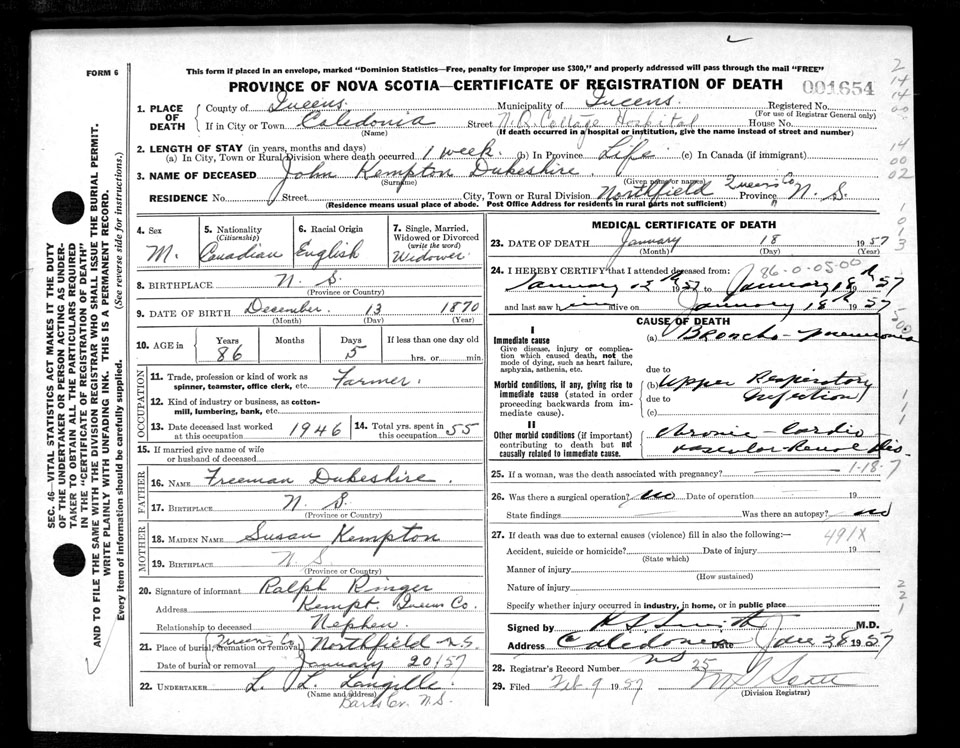 This form if placed in an envelope, marked "Dominion Statistics—Free, penalty for improper use $300," and properly addressed will pass through the mail "FREE"
FORM 6
PROVINCE OF NOVA SCOTIA—CERTIFICATE OF REGISTRATION OF DEATH
001654
1. PLACE OF DEATH { County of Queens. Municipality of Queens. Registered No.
(For use of Registrar General only)
If in City or Town Caledonia Street N.Q. Cottage Hospital House No.
(Name) (If death occurred in a hospital or institution, give the name instead of street and number)
2. LENGTH OF STAY (in years, months and days)
(a) In City, Town or Rural Division where death occurred 1 week. (b) In Province Life (c) In Canada (if immigrant)
3. NAME OF DECEASED John Kempton Dukeshire
(Surname) (Given name or names)
RESIDENCE No. Street City, Town or Rural Division Northfield Queens Co Province N. S
(Residence means usual place of abode. Post Office Address for residents in rural parts not sufficient)
SEC. 46—VITAL STATISTICS ACT MAKES IT THE DUTY
OF THE UNDERTAKER OR PERSON ACTING AS UNDER-
TAKER TO OBTAIN ALL THE PARTICULARS REQUIRED
IN THE "CERTIFICATE OF REGISTRATION OF DEATH"
AND TO FILE THE SAME WITH THE DIVISION REGISTRAR WHO SHALL ISSUE THE BURIAL PERMIT.
WRITE PLAINLY WITH UNFADING INK. THIS IS A PERMANENT RECORD.
Every item of information should be carefully supplied. (See reverse side for instructions.)
4. Sex M.
5. Nationality (Citizenship) Canadian
6. Racial Origin English
7. Single, Married, Widowed or Divorced (write the word) Widower
8. BIRTHPLACE N. S
(Province or Country)
9. DATE OF BIRTH December 13 1870
(Month) (Day) (Year)
10. AGE in Years 86 Months Days 5 If less than one day old
hrs. or min.
OCCUPATION
11. Trade, profession or kind of work as spinner, teamster, office clerk, etc. Farmer.
12. Kind of industry or business, as cotton-mill, lumbering, bank, etc.
13. Date deceased last worked at this occupation 1946
14. Total yrs. spent in this occupation 55
15. If married give name of wife or husband of deceased
FATHER
16. NAME Freeman Dukeshire.
17. BIRTHPLACE N. S.
(Province or Country)
MOTHER
18. MAIDEN NAME Susan Kempton
19. BIRTHPLACE N. S.
(Province or Country)
20. Signature of informant Ralph Ringer
Address Kempt Queens Co.
Relationship to deceased Nephew.
21. Place of burial, cremation or removal (Queens Co) Northfield N.S.
Date of burial or removal January 20/57
22. UNDERTAKER L. L. Langille
(Name and address)
N.S.
MEDICAL CERTIFICATE OF DEATH
23. DATE OF DEATH January 18 1957
(Month) (Day) (Year)
86-0-05-00
24. I HEREBY CERTIFY that I attended deceased from:
January 13th 1957 to January 18th 1957
and last saw him alive on January 18th 1957
CAUSE OF DEATH
I
Immediate cause
Give disease, injury or complication which caused death, not the mode of dying, such as heart failure, asphyxia, asthenia, etc.
(a) Broncho-pneumonia
due to
Morbid conditions, if any, giving rise to immediate cause (stated in order proceeding backwards from immediate cause).
(b) Upper Respiratory Infection
due to
(c)
II
Other morbid conditions (if important) contributing to death but not causally related to immediate cause.
Chronic Cardio Vascular Renal Dis.
25. If a woman, was the death associated with pregnancy? 1-18-7
26. Was there a surgical operation? no Date of operation 19
State findings Was there an autopsy? no
27. If death was due to external causes (violence) fill in also the following:— 491X
Accident, suicide or homicide? Date of injury 19
(State which)
Manner of injury
(How sustained)
Nature of injury
Specify whether injury occurred in industry, in home, or in public place
Signed by Smith M.D.
Address Caledonia NS Date 1957
28. Registrar's Record Number 25
29. Filed Feb. 9 1957
(Division Registrar)